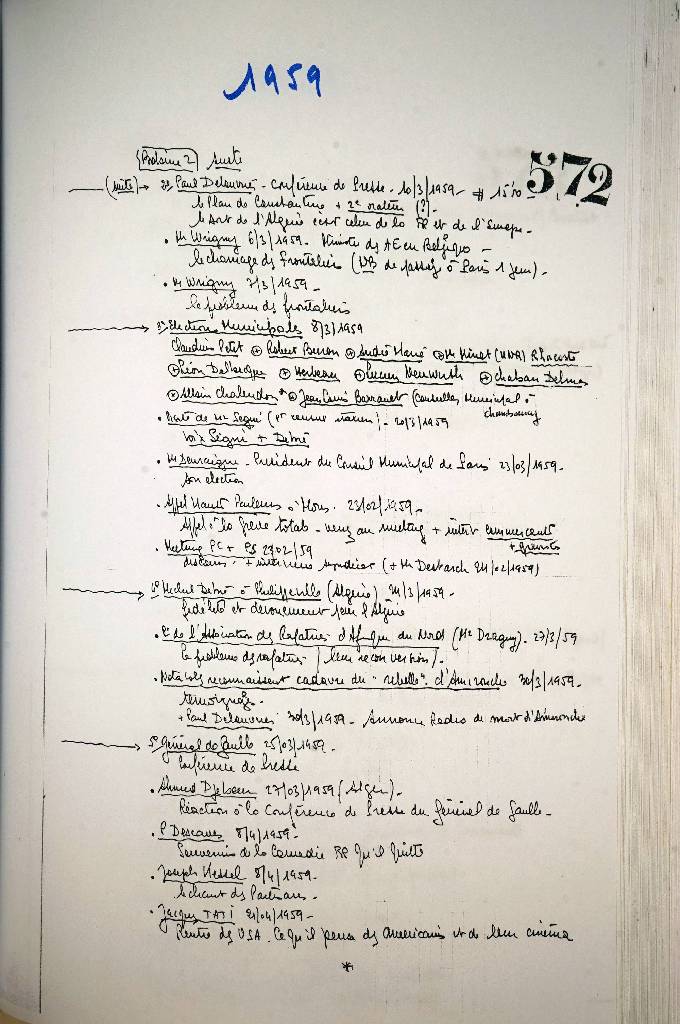 1959
572
suite
(suite) → Paul Delouvrier - Conférence de Presse - 10/3/1959 -
le Plan de Constantine + 2e orateur (?)
le sort de l'Algérie c'est celui de la FR et de l'Europe -
• Mr Wrigny 6/3/1959 - Ministre des AE en Belgique -
le chomage des frontaliers ( de passage à Paris 1 jour) -
• Mr Wrigny 7/3/1959 -
le problème des frontaliers
Elections Municipales 8/3/1959
Claudius Petit + Robert Buron + André + Mr Minet (UNR) R Lacoste
+ Léon Delbecque + + Lucien Neuwirth + Chaban Delmas
+ Albin Chalandon + Jean Louis Barrault (Conseiller Municipal à
• Visite de Mr Segni - 20/3/1959
Voix Segni + Debré
• Mr Devraigne - Président du Conseil Municipal de Paris 23/03/1959 -
Son election
• Appel à Mons - 23/02/1959 -
Appel à la grève totale - venez au meeting + inter commerçants
+ grévistes
• Meeting PC + PS 27/02/59
discours + (+ Mr 24/02/1959)
4° Michel Debré à Philippeville (Algérie) 24/3/1959 -
fidélité et dévouement pour l'Algérie
• Pt de l'Association des Rapatriés d'Afrique du Nord - 27/3/59
le problème des rapatriés / leur reconversion / -
• Notables reconnaissent cadavre du "rebelle" d'Amirouche 30/3/1959 -
témoignages -
+ Paul Delouvrier 30/3/1959 - Annonce Radio de mort d'Amirouche
5° Général de Gaulle 25/03/1959 -
Conférence de Presse
• Ahmed 27/03/1959 (Alger) -
Réaction à la Conférence de Presse du Général de Gaulle -
• P Descaves 8/4/1959 -
Souvenirs de la Comédie FR qu'il quitte
• Joseph Kessel 8/4/1959 -
le chant des Partisans -
• Jacques TATI 21/04/1959 -
Rentre des USA. Ce qu'il pense des Américains et de leur cinéma
*